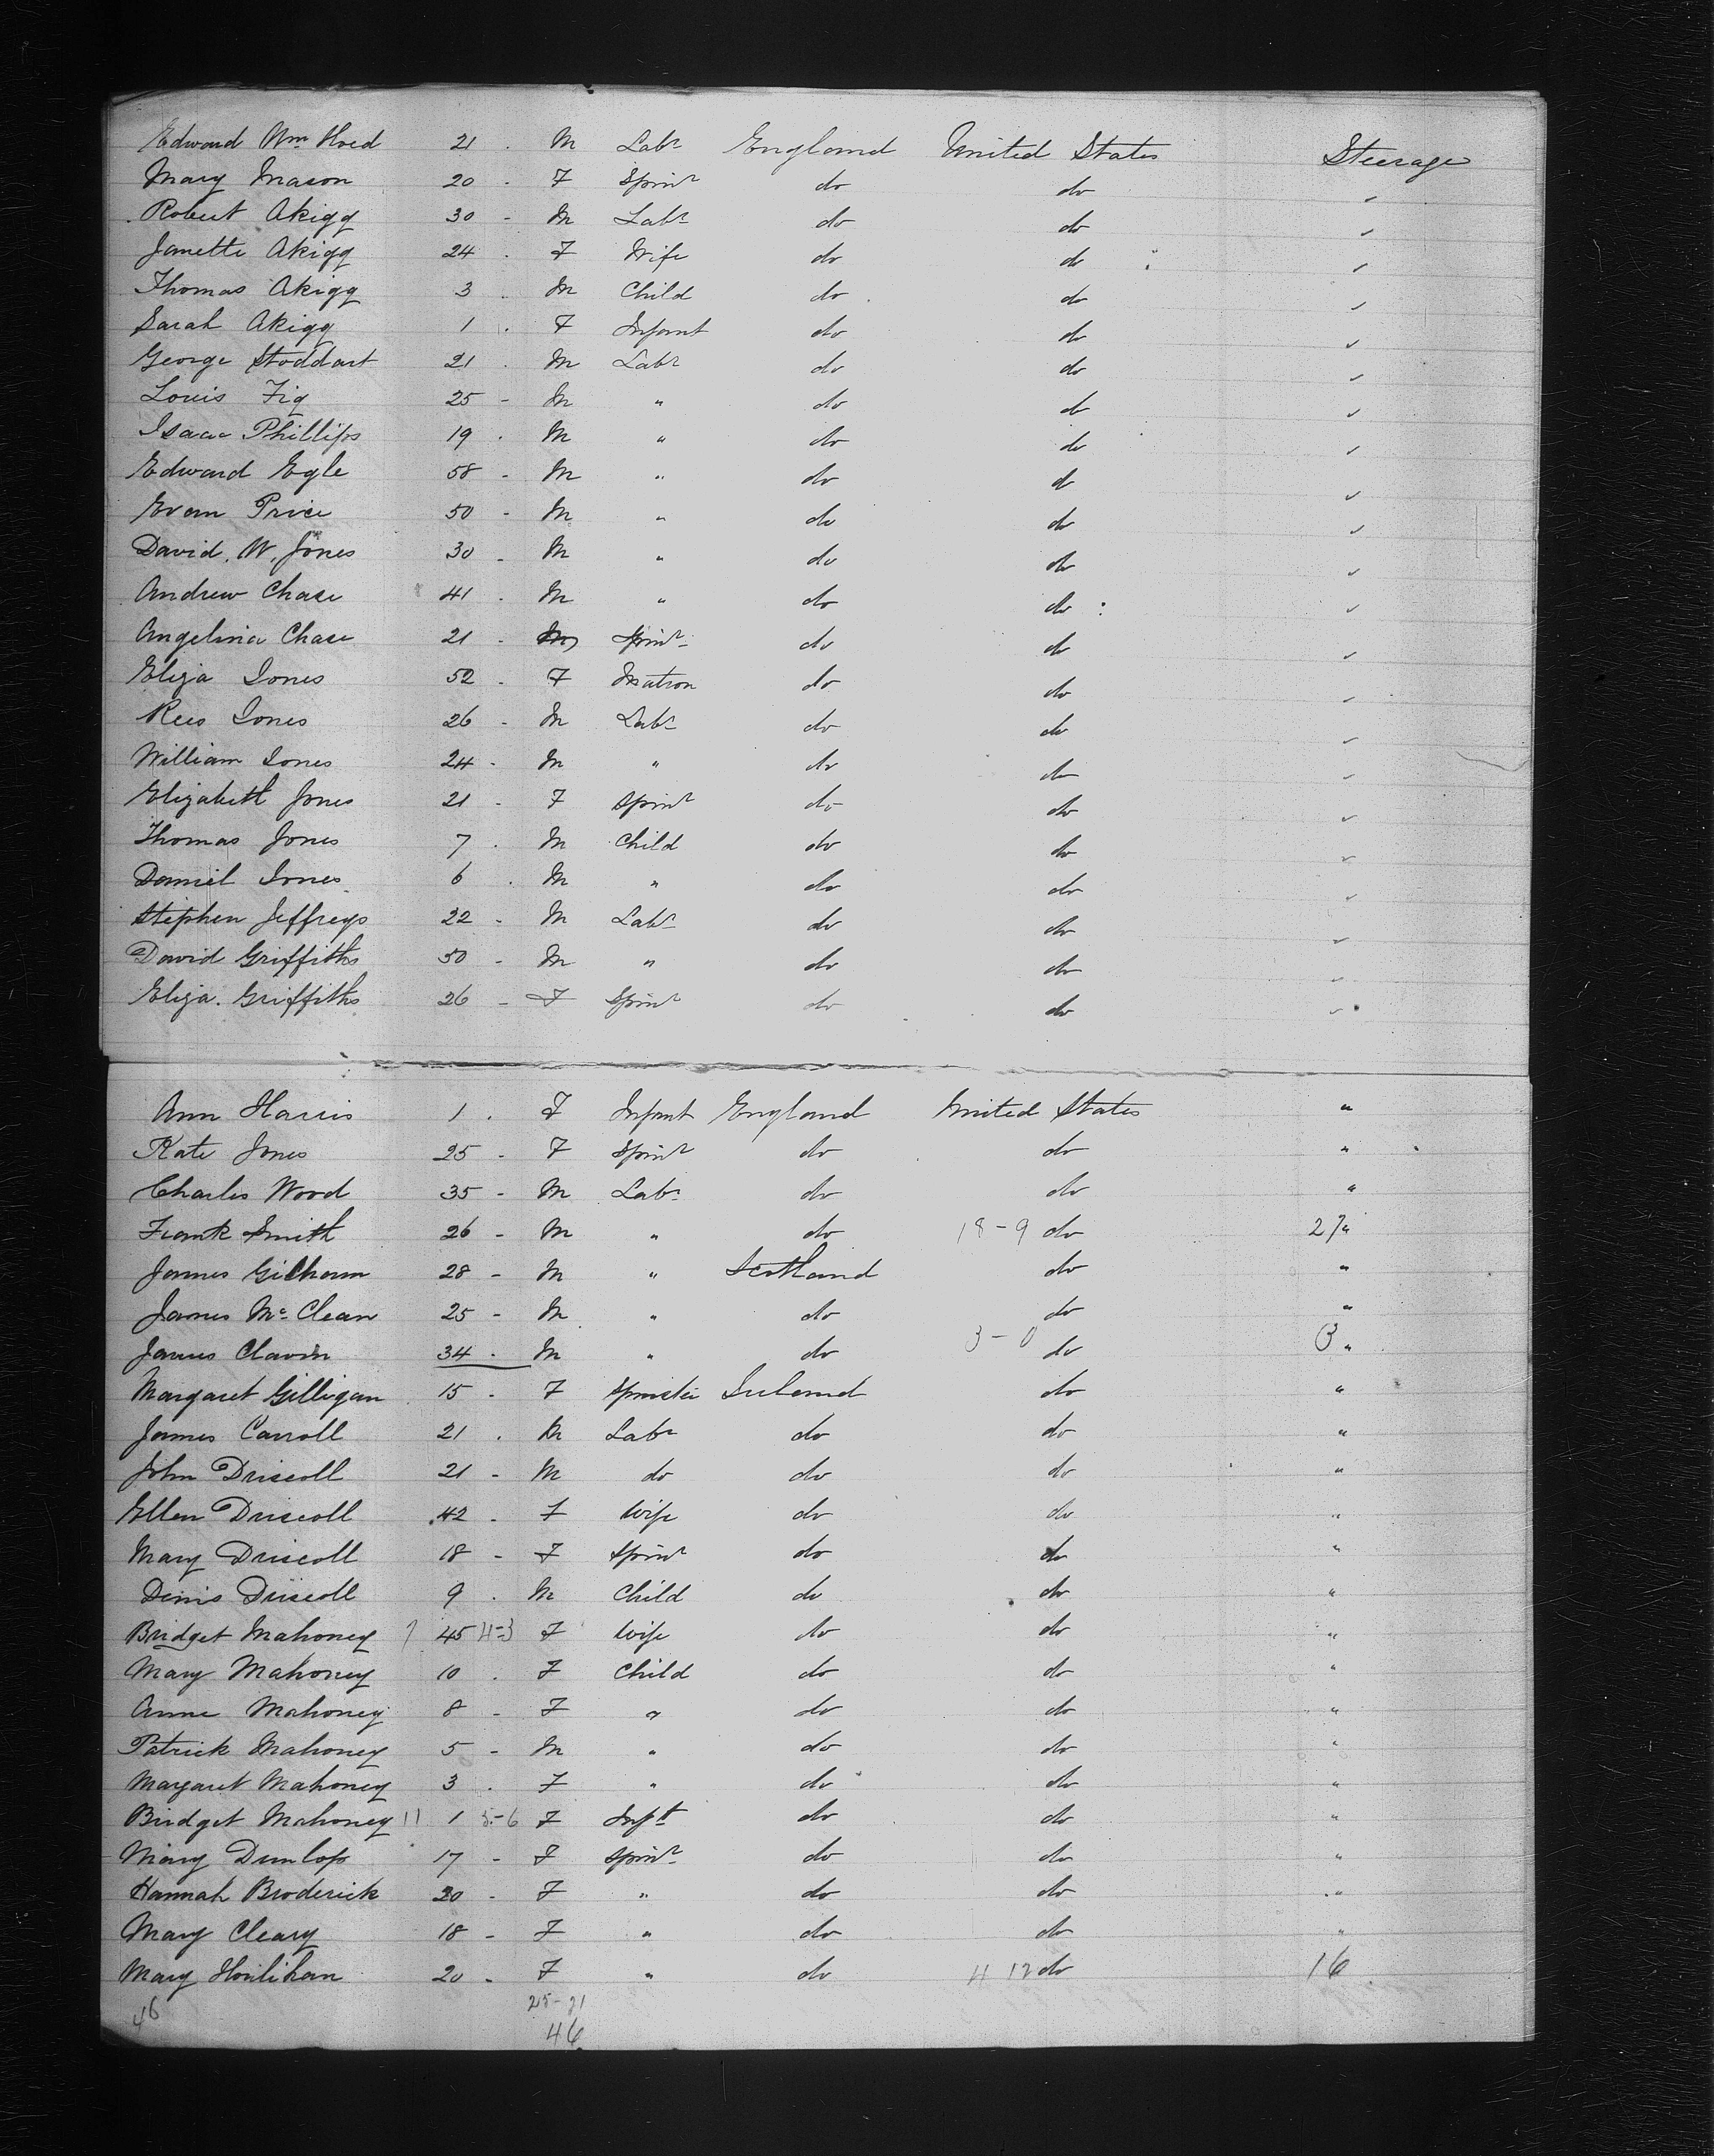 Edward Wm Hoed 21 . M Labr England United States Steerage
Mary Mason 20 - F Spinr do do "
Robert Akigg 30 - M Labr do do "
Janette Akigg 24 . F Wife do do "
Thomas Akigg 3 . M Child do do "
Sarah Akigg 1 . F Infant do do "
George Stoddart 21 . M Labr do do "
Louis Fig 25 - M " do do "
Isaac Phillips 19 . M " do do "
Edward Egle 58 - M " do do "
Evan Price 50 - M " do do "
David. W. Jones 30 - M " do do "
Andrew Chase 41 . M " do do "
Angelina Chase 21 - Spinr do do "
Eliza Jones 52 - F Matron do do "
Rees Jones 26 - M Labr do do "
William Jones 24 - M " do do "
Elizabeth Jones 21 - F Spinr do do "
Thomas Jones 7 . M Child do do "
Daniel Jones 6 . M " do do "
Stephen Jeffreys 22 - M Labr do do "
David Griffiths 50 - M " do do "
Eliza. Griffiths 26 - F Spinr do do "
Ann Harris 1 . F Infant England United States "
Kate Jones 25 - F Spinr do do "
Charles Wood 35 - M Labr do do "
Frank Smith 26 - M " do 18-9 do 27 "
James Gilham 28 - M " Scotland do "
James Mc Clean 25 - M " do do "
James Clavin 34 . M " do 3-0 do 3 "
Margaret Gilligan 15 - F Spinster Ireland do "
James Carroll 21 . M Labr do do "
John Driscoll 21 - M do do do "
Ellen Driscoll 42 - F Wife do do "
Mary Driscoll 18 - F Spinr do do "
Denis Driscoll 9 . M Child do do "
Bridget Mahoney 45 4-3 F Wife do do "
Mary Mahoney 10 . F Child do do "
Anne Mahoney 8 - F " do do "
Patrick Mahoney 5 - M " do do "
Margaret Mahoney 3 . F " do do "
Bridget Mahoney 11 1 5-6 F Inft do do "
Mary Dunlop 17 - F Spinr do do "
Hannah Broderick 20 - F " do do "
Mary Cleary 18 - F " do do "
Mary Houlihan 20 - F " do 4 12 do 16
46 25-21
46